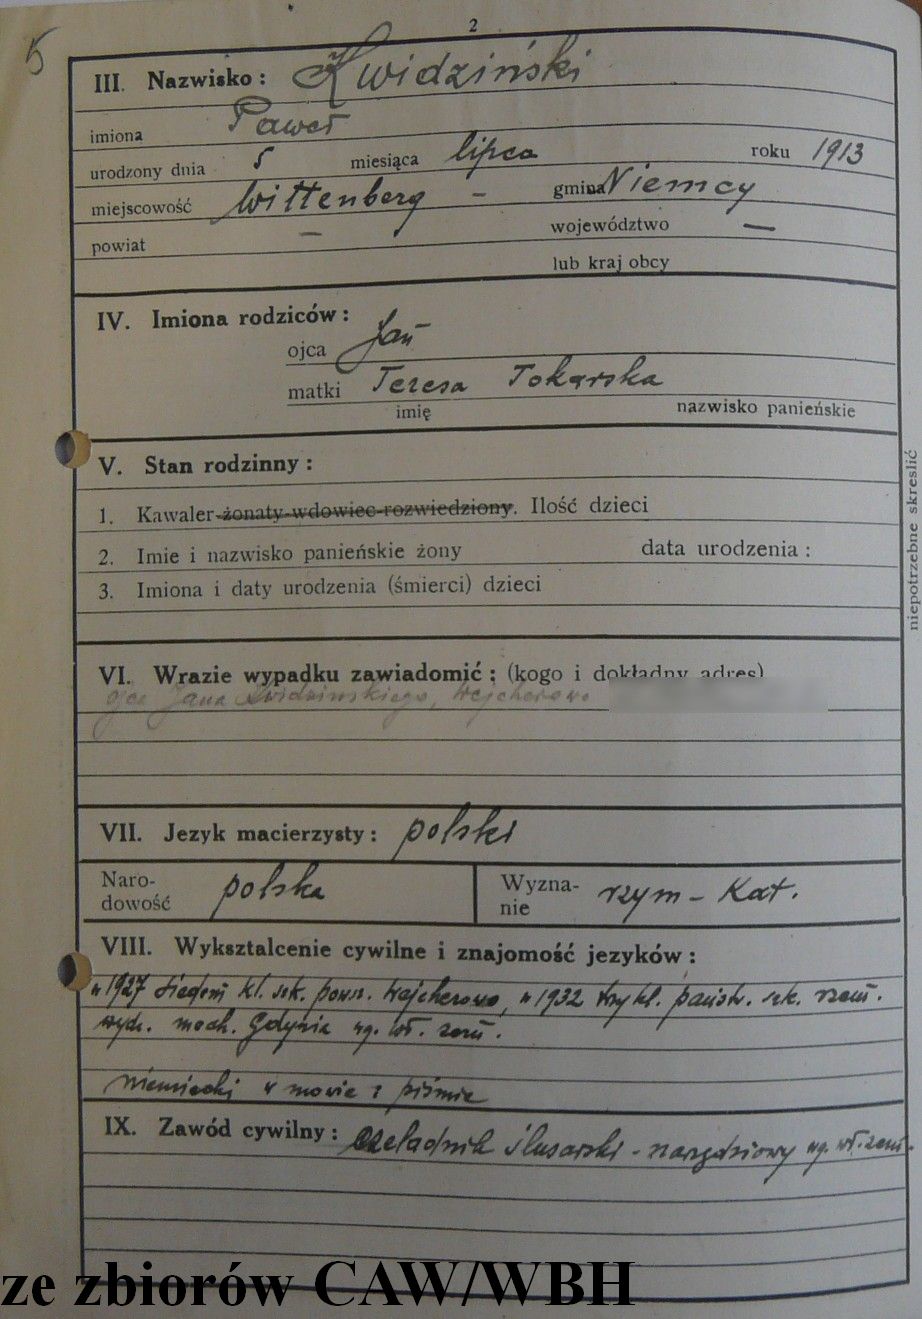 5
2
III. Nazwisko: Kwidziński
imiona Paweł
urodzony dnia 5 miesiąca lipca roku 1913
miejscowość Wittenberg - gmina Niemcy
powiat — województwo —
lub kraj obcy
IV. Imiona rodziców:
ojca Jan
matki Teresa Tokarska
imię nazwisko panieńskie
V. Stan rodzinny:
1. Kawaler-żonaty-wdowiec-rozwiedziony. Ilość dzieci
2. Imie i nazwisko panieńskie żony data urodzenia:
3. Imiona i daty urodzenia (śmierci) dzieci
niepotrzebne skreslić
VI. Wrazie wypadku zawiadomić: (kogo i dokładny adres)
ojca Jana Kwidzińskiego, Wejherowo
VII. Jezyk macierzysty: polski
Naro-
dowość polska
Wyzna-
nie rzym-Kat.
VIII. Wyksztalcenie cywilne i znajomość jezyków:
w 1927 siedem kl. szk. powsz. Wejherowo, w 1932 trzy kl. państw. szk. rzem.
wydz. mech. Gdynia wg. wł. zezn.
niemiecki w mowie i piśmie
IX. Zawód cywilny: czeladnik ślusarski - narzędziowy wg. wł. zezn.
ze zbiorów CAW/WBH